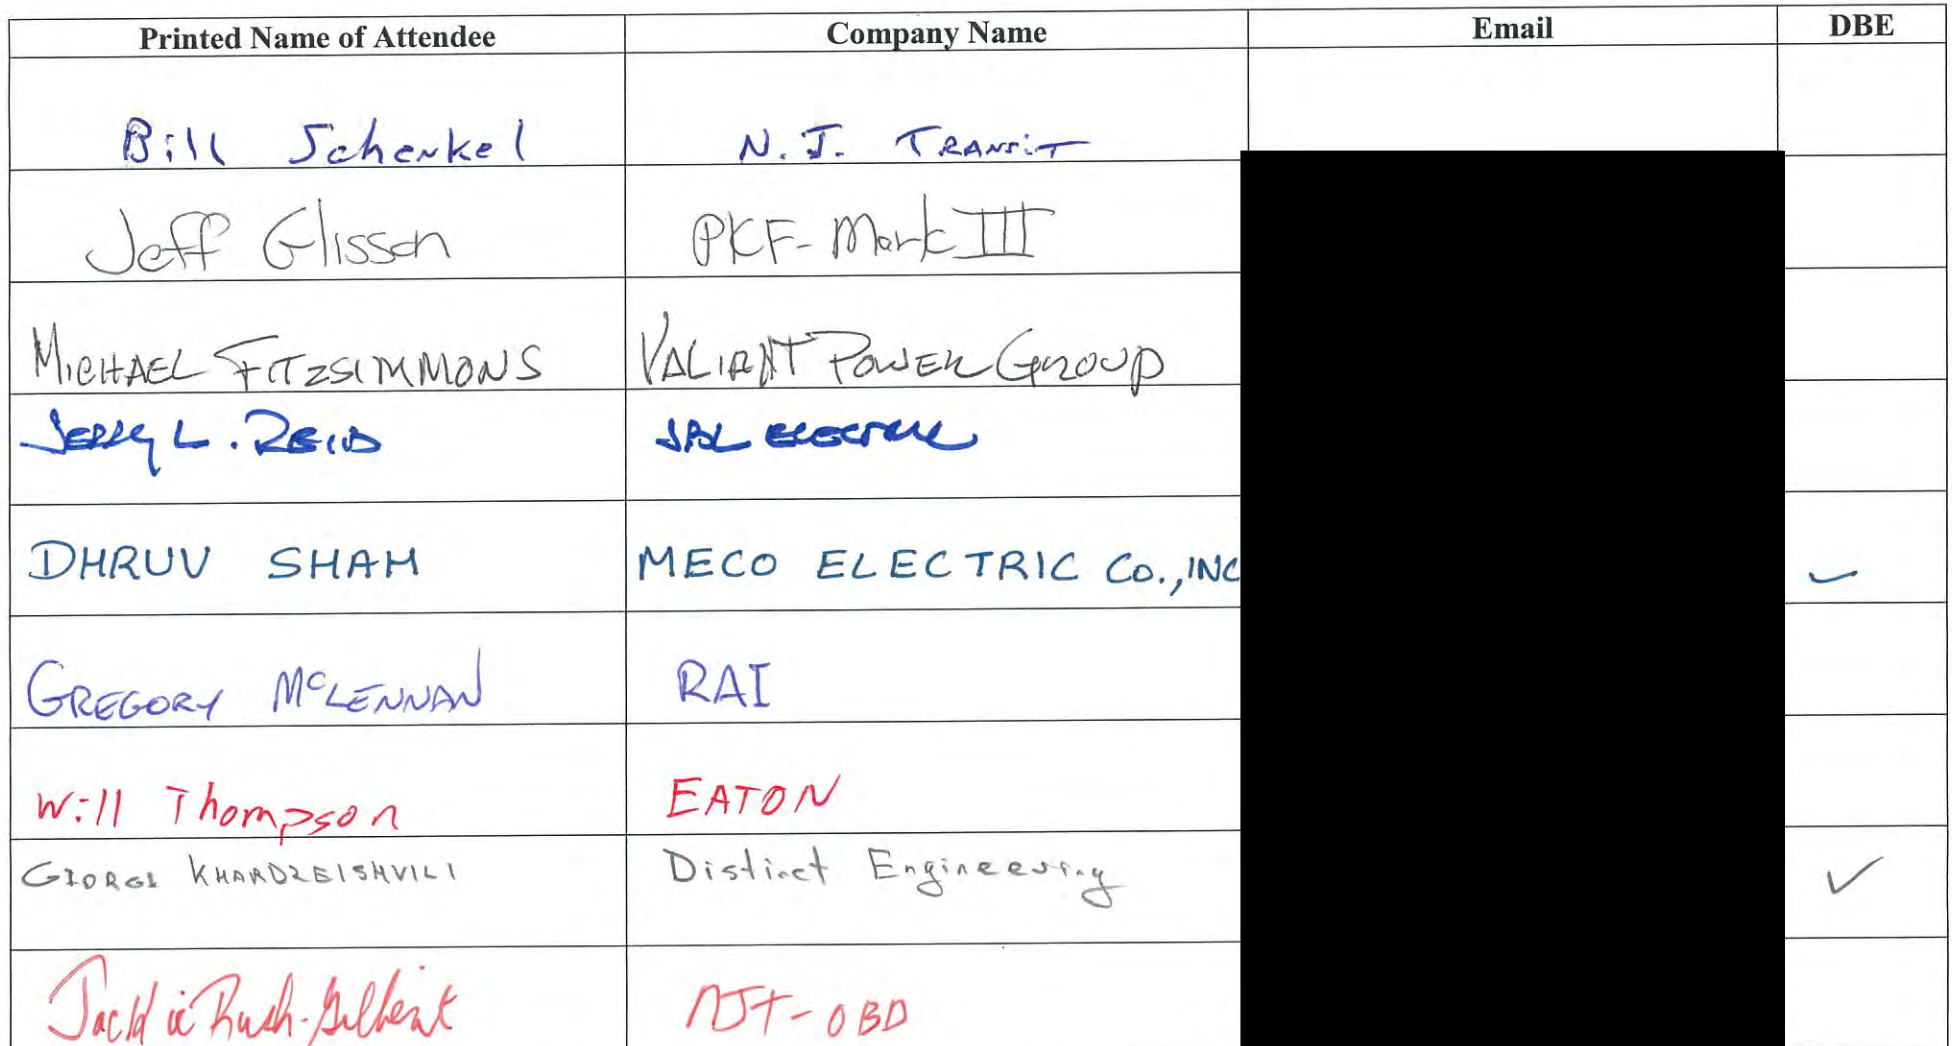 Printed Name of Attendee Company Name Email DBE
Bill Schenkel N.J. TRANSiT
Jeff Glisson PKF-Mark III
MICHAEL FITZSIMMONS VALIANT POWER GROUP
JERRY L. REID JBL ELECTRIC
DHRUV SHAH MECO ELECTRIC Co., INC
GREGORY McLENNAN RAI
Will Thompson EATON
GIORGI KHARDZEISHVILI Distinct Engineering
Jackie Rush-Gilbert NJT-OBD